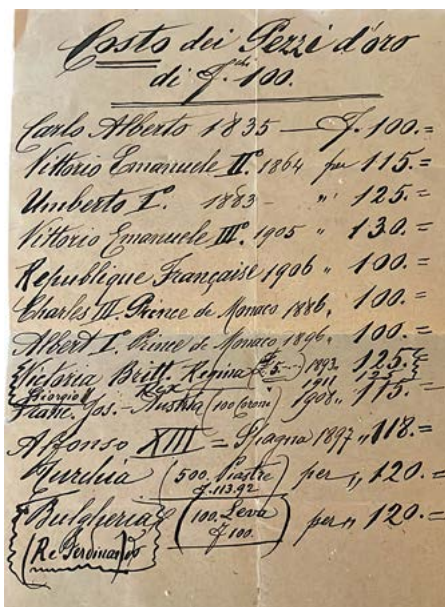 Costo dei Pezzi d'oro
di F.chi 100.
Carlo Alberto 1835 — F. 100.=
Vittorio Emanuele II.° 1864 per 115.=
Umberto I.° 1883 - " 125.=
Vittorio Emanuele III.° 1905 " 130.=
Republique Française 1906 " 100.=
Charles III. Prince de Monaco 1886, 100.=
Albert I.° Prince de Monaco 1896 " 100.=
Victoria Britt. Regina (£ 5...) 1893. 125.=
Giorgio V Rex 1911 125.=
Franc. Jos. - Austria (100 Corone) 1908 " 115.=
Alfonso XIII = Spagna 1897 " 118.=
Turchia (500. Piastre) per " 120.=
F. 113.92
Bulgheria (100. Leva) per " 120.=
F 100.
(Re Ferdinando)